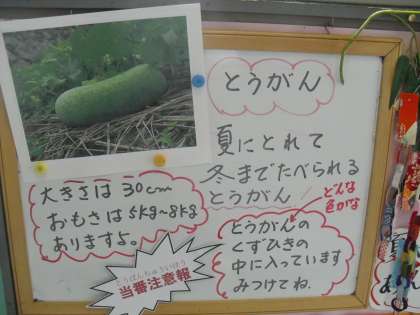 とうがん
夏にとれて
冬までたべられる
とうがん
どんな
色かな
大きさは 30cm
おもさは5kg〜8kg
ありますよ。
とうがんの
くずひきの
中に入っています
みつけてね.
とうばんちゅういほう
当番注意報